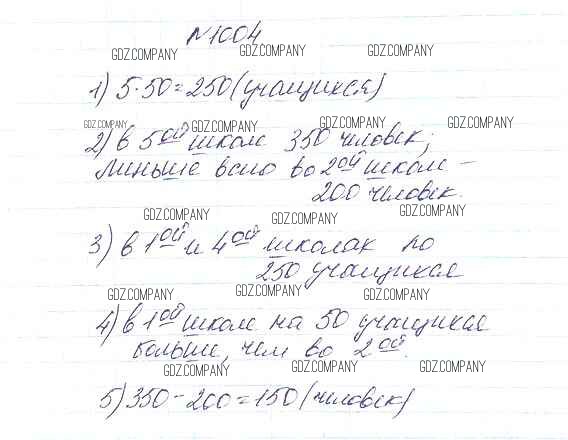 №1004
GDZ.COMPANY GDZ.COMPANY GDZ.COMPANY
1) 5·50=250 (учащихся)
GDZ.COMPANY GDZ.COMPANY GDZ.COMPANY GDZ.COMPANY
2) в 5ой школе 350 человек;
меньше всего во 2ой школе –
200 человек.
GDZ.COMPANY GDZ.COMPANY GDZ.COMPANY
3) в 1ой и 4ой школах по
250 учащихся
GDZ.COMPANY GDZ.COMPANY GDZ.COMPANY
4) в 1ой школе на 50 учащихся
больше, чем во 2ой.
GDZ.COMPANY GDZ.COMPANY GDZ.COMPANY
5) 350-200=150 (человек)